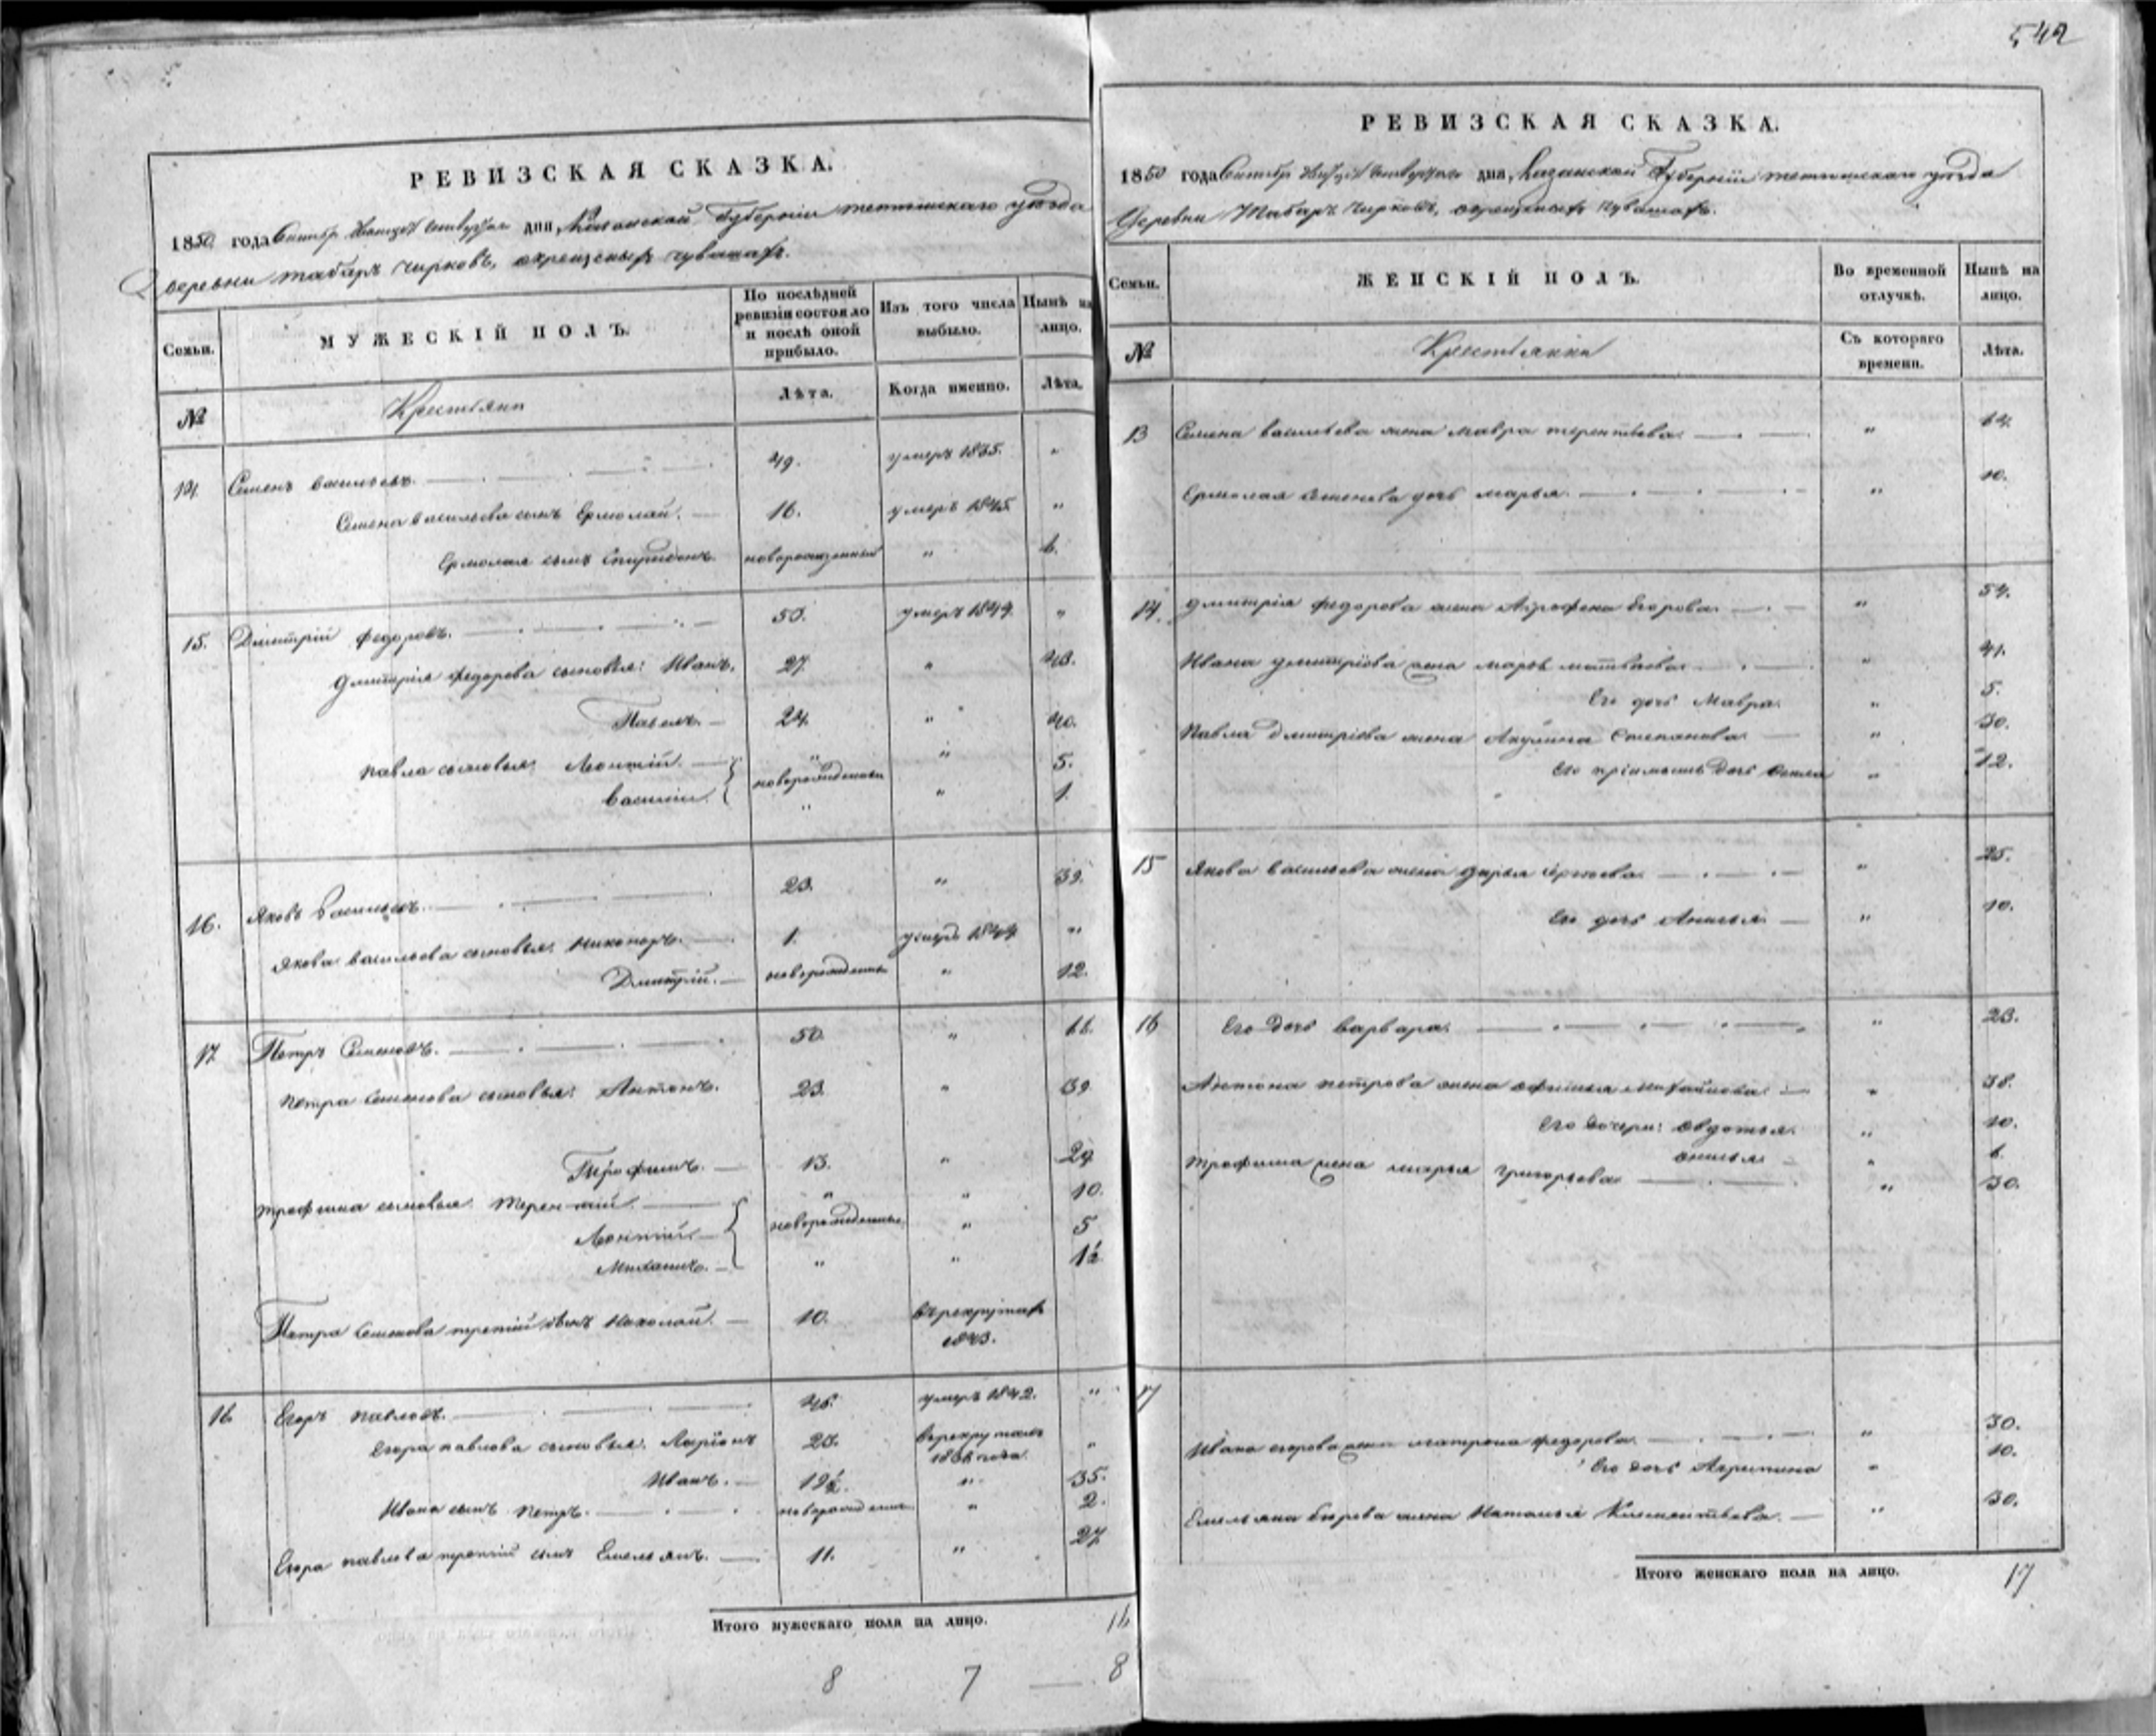 РЕВИЗСКАЯ СКАЗКА.
1850 года дня, Казанской Губернии тетюшскаго уѣзда
Деревни табаръ чирковъ, чувашахъ.
Семьи.
МУЖЕСКІЙ ПОЛЪ.
По послѣдней ревизіи состояло и послѣ оной прибыло.
Изъ того числа выбыло.
Нынѣ на лицо.
№
Крестьяне
Лѣта.
Когда именно.
Лѣта.
14. Семенъ васильевъ. 49. умеръ 1835. "
Семена васильева сынъ Ермолай. 16. умеръ 1845. "
Ермолая сынъ Спиридонъ. новорожденный " 6.
15. Дмитрій федоровъ. 50. умеръ 1849. "
Дмитрія федорова сыновья: Иванъ. 27. " 43.
Павелъ. 24. " 40.
павла сыновья: Леонтій. " " 5.
новорожденные
василій. " " 1.
16. Яковъ Васильевъ. 23. " 39.
якова васильева сыновья: никаноръ. 1. умеръ 1844. "
Дмитрій. новорожденный " 12.
17. Петръ Семеновъ. 50. " 66.
петра семенова сыновья: Антонъ. 23. " 39
Трофимъ. 13. " 29.
трофима сыновья: терентій. " " 10.
Леонтій. новорожденные " 5
Михаилъ. " " 1½
Петра семенова третій сынъ Николай. 10. въ рекрутахъ
1843.
16 Егоръ павловъ. 46. умеръ 1842. "
Егора павлова сыновья: Ларіонъ 25. въ рекрутахъ "
года
Иванъ. 19½. " 35.
Ивана сынъ петръ. новорожденный " 2.
Егора павлова третій сынъ Емельянъ. 11. " 27
Итого мужескаго пола на лицо. 16
8 7 8
542
РЕВИЗСКАЯ СКАЗКА.
1850 года дня, Казанской Губерніи тетюшскаго уѣзда
Деревни Табаръ чирковъ, чувашахъ.
Семьи.
ЖЕНСКІЙ ПОЛЪ.
Во временной отлучкѣ.
Нынѣ на лицо.
№
Крестьянки
Съ котораго времени.
Лѣта.
13 Семена васильева жена мавра терентьева. " 64.
Ермолая семенова дочь марья. " 10.
14. дмитрія федорова жена Аграфена Егорова. " 54.
Ивана дмитріева жена марья матвѣева. " 41.
Его дочь Мавра. " 5.
Павла Дмитріева жена Акулина Степанова. " 30.
Его пріемышъ дочь " 12.
15 Якова васильева жена дарья " 25.
Его дочь Анисья. " 10.
16 Его дочь варвара. " 23.
Антона петрова жена афимья михайлова. " 38.
Его дочери: авдотья. " 10.
анисья " 6.
трофима жена марья григорьева " 30.
17
Ивана егорова жена матрена федорова. " 30.
Его дочь Агрипина " 10.
Емельяна Егорова жена Наталья Климентьева. " 30.
Итого женскаго пола на лицо. 17